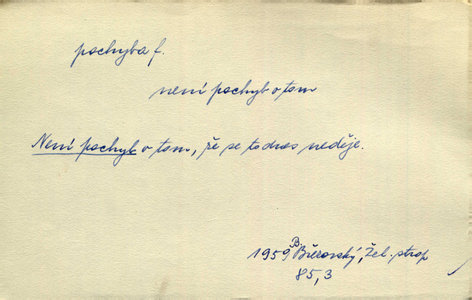 pochyba f.
není pochyb o tom
Není pochyb o tom, že se to dnes neděje.
1959 B. Březovský, Žel. strop
85,3